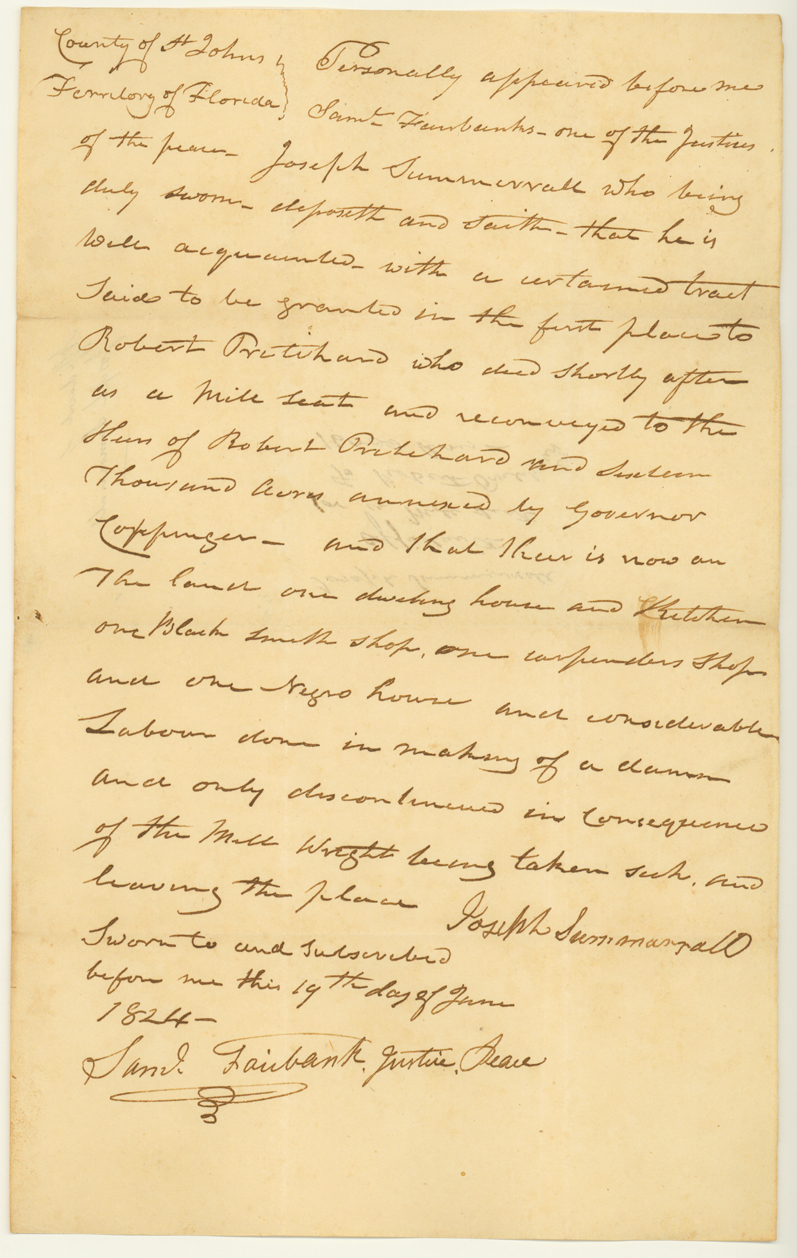 County of St Johns } Personally appeared before me
Territory of Florida } Saml. Fairbanks - one of the Justices
of the peace - Joseph Summerrall who being
duly sworn - deposeth and saith - that he is
well acquainted - with a certained tract
Said to be granted in the first place to
Robert Pritchard who died shortly after
as a Mill seat and reconveyed to the
Heirs of Robert Pritchard and Sixteen
Thousand Acres annexed by Governor
Coppinger - and that their is now on
The land one dweling house and Kitchen
one Black smith shop, one carpenders shop
and one Negro house and considerable
Labour done in making of a damm
and only discontinued in Consequence
of the Mill Wright being taken sick, and
leaving the place Joseph Summarrall
Sworn to and subscribed
before me this 19th day of June
1824 -
Saml. Fairbank. Justice. Peace